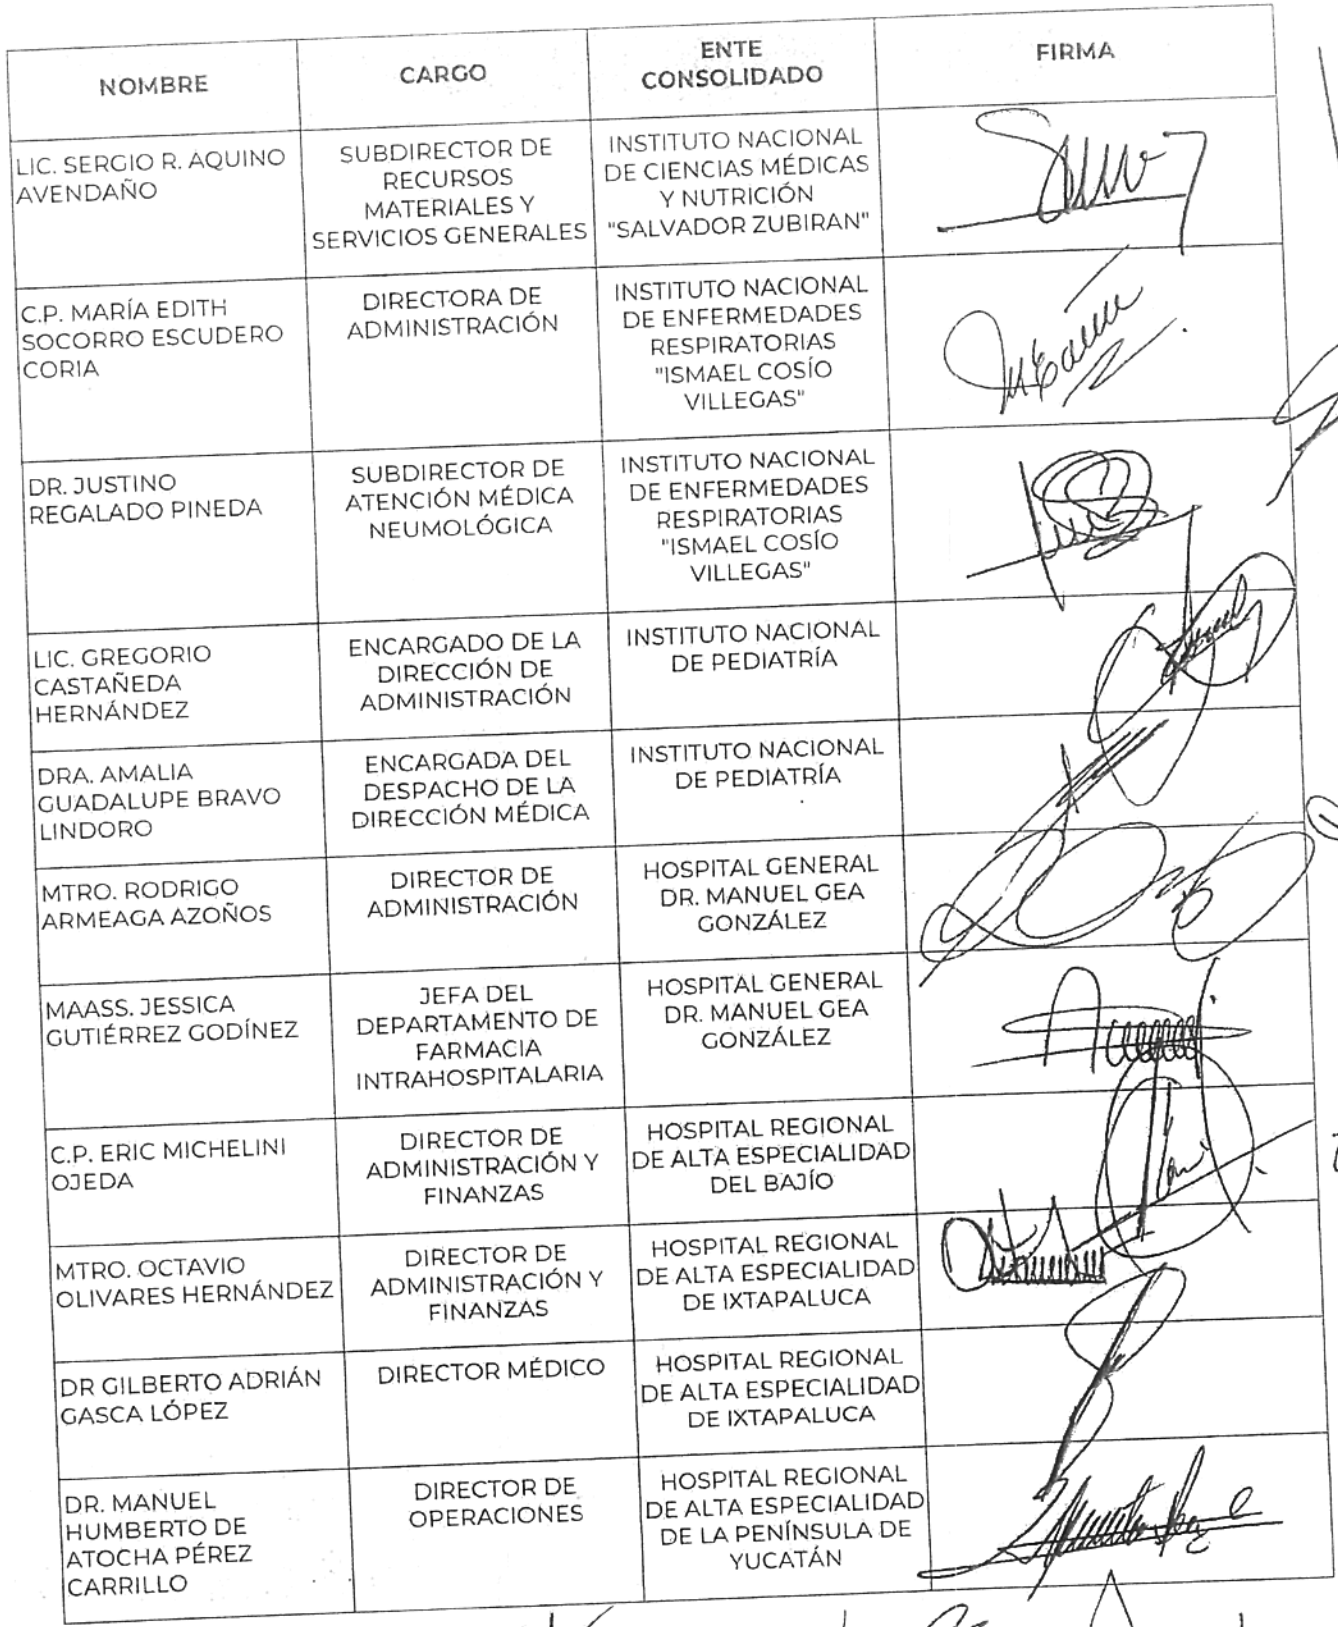 NOMBRE
CARGO
ENTE
CONSOLIDADO
FIRMA
LIC. SERGIO R. AQUINO
AVENDAÑO
SUBDIRECTOR DE
RECURSOS
MATERIALES Y
SERVICIOS GENERALES
INSTITUTO NACIONAL
DE CIENCIAS MÉDICAS
Y NUTRICIÓN
"SALVADOR ZUBIRAN"
C.P. MARÍA EDITH
SOCORRO ESCUDERO
CORIA
DIRECTORA DE
ADMINISTRACIÓN
INSTITUTO NACIONAL
DE ENFERMEDADES
RESPIRATORIAS
"ISMAEL COSÍO
VILLEGAS"
DR. JUSTINO
REGALADO PINEDA
SUBDIRECTOR DE
ATENCIÓN MÉDICA
NEUMOLÓGICA
INSTITUTO NACIONAL
DE ENFERMEDADES
RESPIRATORIAS
"ISMAEL COSÍO
VILLEGAS"
LIC. GREGORIO
CASTAÑEDA
HERNÁNDEZ
ENCARGADO DE LA
DIRECCIÓN DE
ADMINISTRACIÓN
INSTITUTO NACIONAL
DE PEDIATRÍA
DRA. AMALIA
GUADALUPE BRAVO
LINDORO
ENCARGADA DEL
DESPACHO DE LA
DIRECCIÓN MÉDICA
INSTITUTO NACIONAL
DE PEDIATRÍA
MTRO. RODRIGO
ARMEAGA AZOÑOS
DIRECTOR DE
ADMINISTRACIÓN
HOSPITAL GENERAL
DR. MANUEL GEA
GONZÁLEZ
MAASS. JESSICA
GUTIÉRREZ GODÍNEZ
JEFA DEL
DEPARTAMENTO DE
FARMACIA
INTRAHOSPITALARIA
HOSPITAL GENERAL
DR. MANUEL GEA
GONZÁLEZ
C.P. ERIC MICHELINI
OJEDA
DIRECTOR DE
ADMINISTRACIÓN Y
FINANZAS
HOSPITAL REGIONAL
DE ALTA ESPECIALIDAD
DEL BAJÍO
MTRO. OCTAVIO
OLIVARES HERNÁNDEZ
DIRECTOR DE
ADMINISTRACIÓN Y
FINANZAS
HOSPITAL REGIONAL
DE ALTA ESPECIALIDAD
DE IXTAPALUCA
DR GILBERTO ADRIÁN
GASCA LÓPEZ
DIRECTOR MÉDICO
HOSPITAL REGIONAL
DE ALTA ESPECIALIDAD
DE IXTAPALUCA
DR. MANUEL
HUMBERTO DE
ATOCHA PÉREZ
CARRILLO
DIRECTOR DE
OPERACIONES
HOSPITAL REGIONAL
DE ALTA ESPECIALIDAD
DE LA PENÍNSULA DE
YUCATÁN